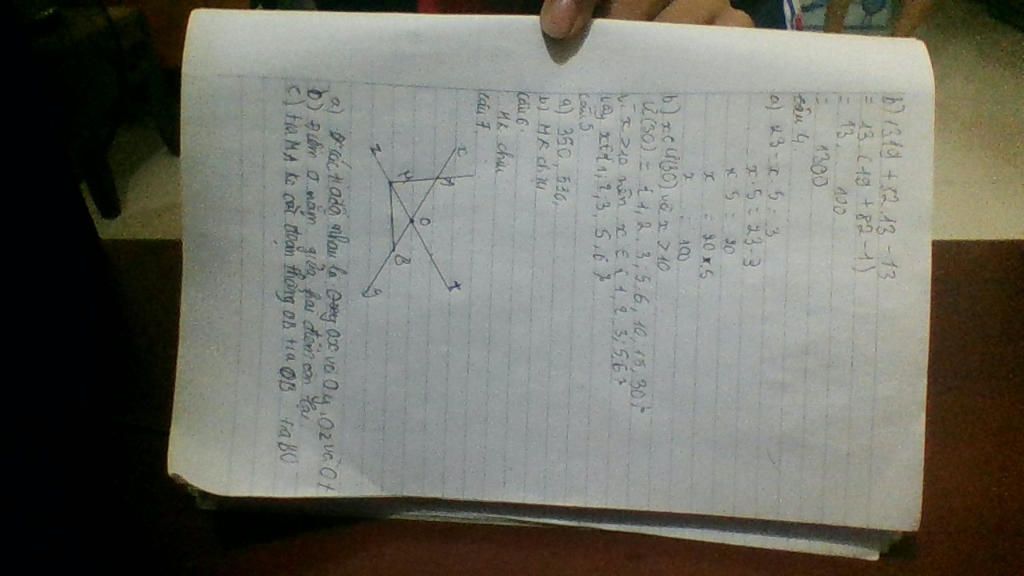 b) 13.19 + 82.13 - 13
= 13 (19 + 82 - 1)
= 13. 100
= 1300
Câu 4.
a) 23 - x 5 = 3
x. 5 = 23 - 3
x 5 = 20
x = 20 x 5
x = 100
b) x ∈ Ư(30) và x > 10
Ư(30) = 1, 2, 3, 5, 6, 10, 15, 30}
vì x > 10 nên x ∈ {1, 2, 3, 5, 6}
Vậy x ∈ {1, 2, 3, 5, 6}
Câu 5
a) 350, 530,
b) Mk chịu
Câu 6.
Mk chịu
Câu 7.
x
M
z
H
O
B
t
y
a) tia đối nhau là Ox và Oy, Oz và Ot
b) điểm O nằm giữa hai điểm còn lại
c) tia MA k cắt đoạn thẳng OB tia OB tia BO